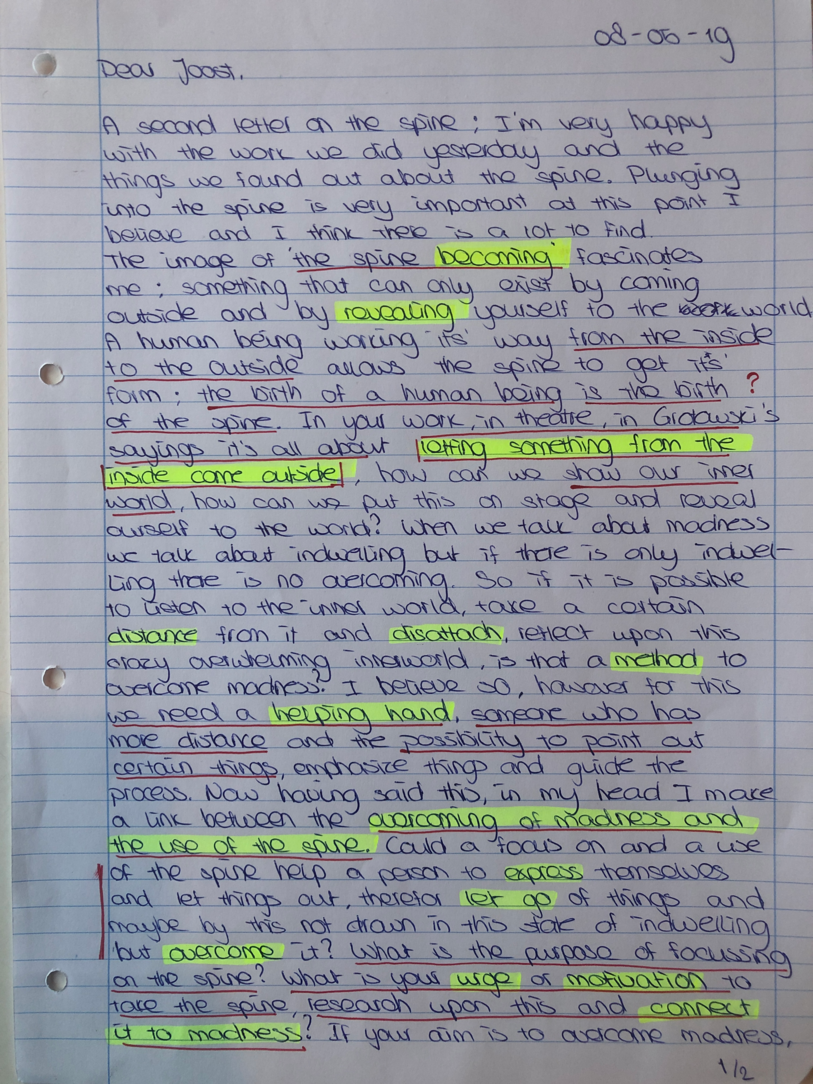 08-05-19
Dear Joost,
A second letter on the spine; I'm very happy
with the work we did yesterday and the
things we found out about the spine. Plunging
into the spine is very important at this point I
believe and I think there is a lot to find.
The image of 'the spine becoming' fascinates
me; something that can only exist by coming
outside and by revealing yourself to the world
A human being working its' way from the inside
to the outside allows the spine to get its'
form; the birth of a human being is the birth ?
of the spine. In your work, in theatre, in Grotowski's
sayings it's all about letting something from the
inside come outside, how can we show our inner
world, how can we put this on stage and reveal
ourself to the world? When we talk about madness
we talk about indwelling but if there is only indwel-
ling there is no overcoming. So if it is possible
to listen to the inner world, take a certain
distance from it and disattach, reflect upon this
crazy overwhelming innerworld, is that a method to
overcome madness? I believe so, however for this
we need a helping hand, someone who has
more distance and the possibility to point out
certain things, emphasize things and guide the
process. Now having said this, in my head I make
a link between the overcoming of madness and
the use of the spine. Could a focus on and a use
of the spine help a person to express themselves
and let things out, therefor let go of things and
maybe by this not drown in this state of indwelling
but overcome it? What is the purpose of focussing
on the spine? What is your urge or motivation to
take the spine, research upon this and connect
it to madness? If your aim is to overcome madness,
1/2